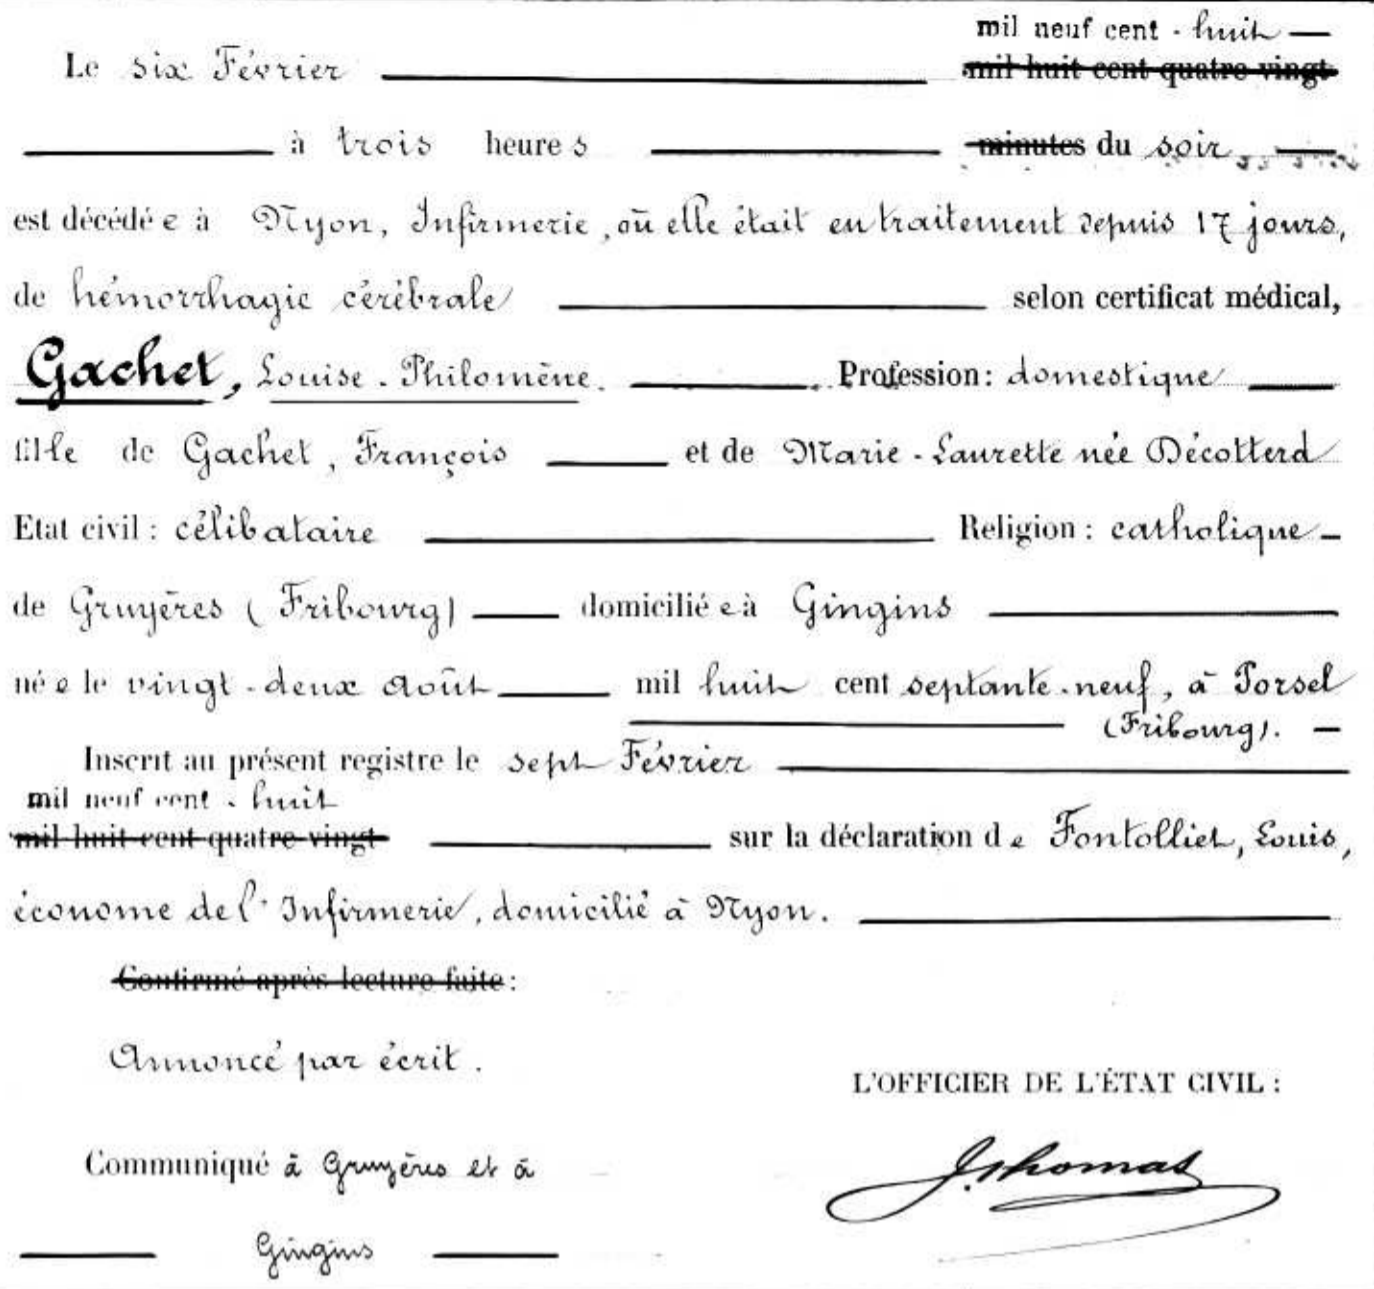 mil neuf cent - huit
Le six Février mil huit cent quatre-vingt
à trois heures minutes du soir
est décédée à Nyon, Infirmerie, où elle était en traitement depuis 17 jours,
de hémorrhagie cérébrale selon certificat médical,
Gachet, Louise - Philomène. Profession: domestique
fille de Gachet, François et de Marie - Laurette née Décotterd
Etat civil : célibataire Religion : catholique
de Gruyères (Fribourg) domiciliée à Gingins
née le vingt-deux août mil huit cent septante-neuf, à Porsel
(Fribourg).
Inscrit au présent registre le sept Février
mil neuf cent - huit
mil huit cent quatre-vingt sur la déclaration de Fontolliet, Louis,
économe de l'Infirmerie, domicilié à Nyon.
Confirmé après lecture faite :
Annoncé par écrit.
L'OFFICIER DE L'ÉTAT CIVIL :
Communiqué à Gruyères et à
J. Thomas
Gingins